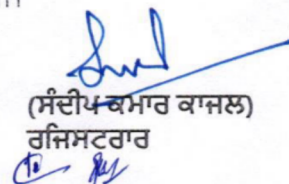 (ਸੰਦੀਪ ਕਮਾਰ ਕਾਜਲ)
ਰਜਿਸਟਰਾਰ